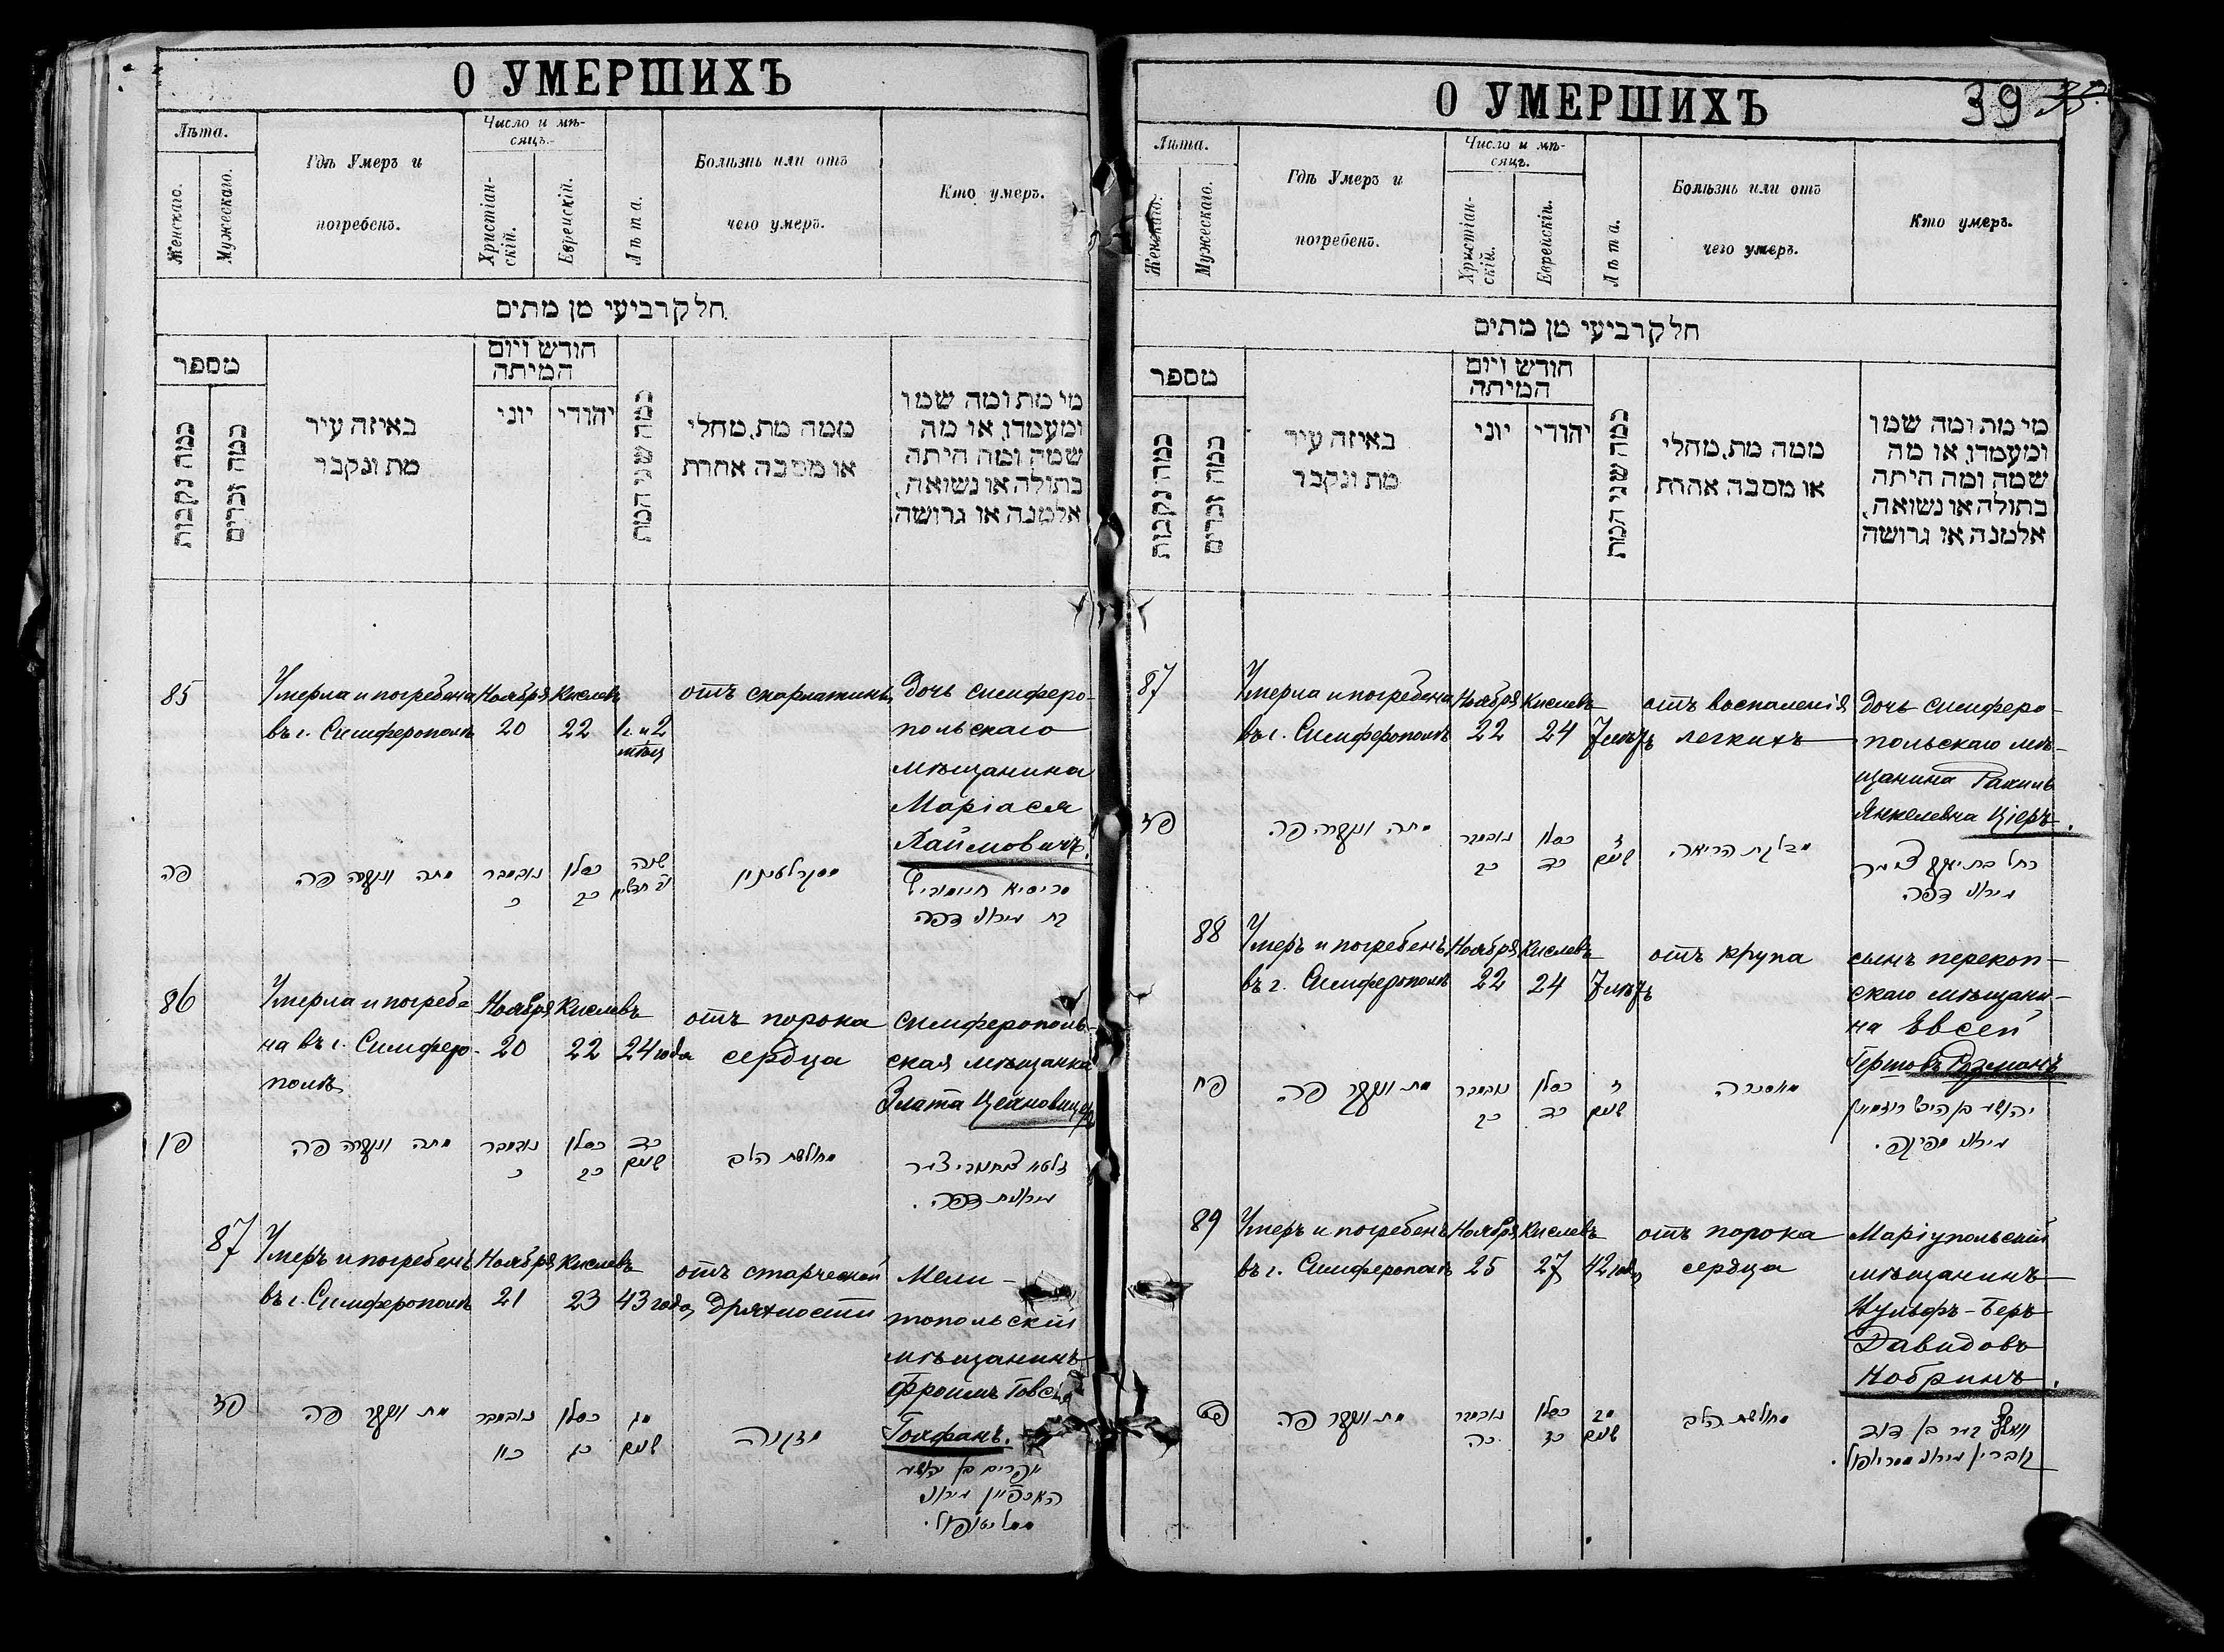 О УМЕРШИХЪ
Лѣта.
Женскаго.
Мужескаго.
Гдѣ Умеръ и
погребенъ.
Число и мѣ-
сяцъ.
Христіан-
скій.
Еврейскій.
Лѣта.
Болѣзнь или отъ
чего умеръ.
Кто умеръ.
חלק רביעי מן מתים
מספר
כמה נקבות
כמה זכרים
באיזה עיר
מת ונקבר
חודש ויום
המיתה
יוני
יהודי
כמה שני המת
ממה מת, מחלי
או מסבה אחרת
מי מת ומה שמו
ומעמדו, או מה
שמה ומה היתה
בתולה או נשואה,
אלמנה או גרושה
85
Умерла и погребена
въ г. Симферополѣ
Ноября
20
Кислевъ
22
1 г. и 2
мѣсяц
отъ скарлатины
Дочь симферо-
польскаго
мѣщанина
Маріася
Хаймовичъ.
פה
מתה ונקברה פה
נובמבר
כ
כסלו
כב
שנה
וב׳ חדשים
מסקרלטינין
בת מיראני דפה
86
Умерла и погребе
на въ г. Симферо-
полѣ
Ноября
20
Кислевъ
22
24 года
отъ порока
сердца
симферополь-
ская мѣщанка
Злата
פו
מתה ונקברה פה
נובמבר
כ
כסלו
כב
כד
שנים
מחולשת הלב
זלטא
דפה.
87
Умеръ и погребенъ
въ г. Симферополѣ
Ноября
21
Кислевъ
23
43 года
отъ старческой
дряхлости
Мели-
топольскій
мѣщанинъ
Фроимъ
פז
מת ונקבר פה
נובמבר
כא
כסלו
כג
מג
שנים
מזקנה
אפרים בן יהושע
מיראני
מליטאפול.
О УМЕРШИХЪ
39 35
Лѣта.
Женскаго.
Мужескаго.
Гдѣ Умеръ и
погребенъ.
Число и мѣ-
сяцъ.
Христіан-
скій.
Еврейскій.
Лѣта.
Болѣзнь или отъ
чего умеръ.
Кто умеръ.
חלק רביעי מן מתים
מספר
כמה נקבות
כמה זכרים
באיזה עיר
מת ונקבר
חודש ויום
המיתה
יוני
יהודי
כמה שני המת
ממה מת, מחלי
או מסבה אחרת
מי מת ומה שמו
ומעמדו, או מה
שמה ומה היתה
בתולה או נשואה,
אלמנה או גרושה
87
Умерла и погребена
въ г. Симферополѣ
Ноября
22
Кислевъ
24
7 лѣтъ
отъ воспаленія
легкихъ
Дочь симферо-
польскаго мѣ-
щанина Рахиль
Янкелевна Ціеръ.
פז
מתה ונקברה פה
נובמבר
כב
כסלו
כד
ז
שנים
מדלקת הריאה
רחל בת יעקב
מיראני דפה
88
Умеръ и погребенъ
въ г. Симферополѣ
Ноября
22
Кислевъ
24
7 лѣтъ
отъ крупа
сынъ перекоп-
скаго мѣщани-
на Евсей
פח
מת ונקבר פה
נובמבר
כב
כסלו
כד
ז
שנים
מאסכרה
יהושע בן הירש
מיראני
89
Умеръ и погребенъ
въ г. Симферополѣ
Ноября
25
Кислевъ
27
42 года
отъ порока
сердца
Маріупольскій
мѣщанинъ
Вульфъ-Беръ
Давидовъ
Кобринъ.
פט
מת ונקבר פה
נובמבר
כה
כסלו
כז
מב
שנים
מחולשת הלב
וואלף בער בן דוד
קוברין מיראני מריופול.